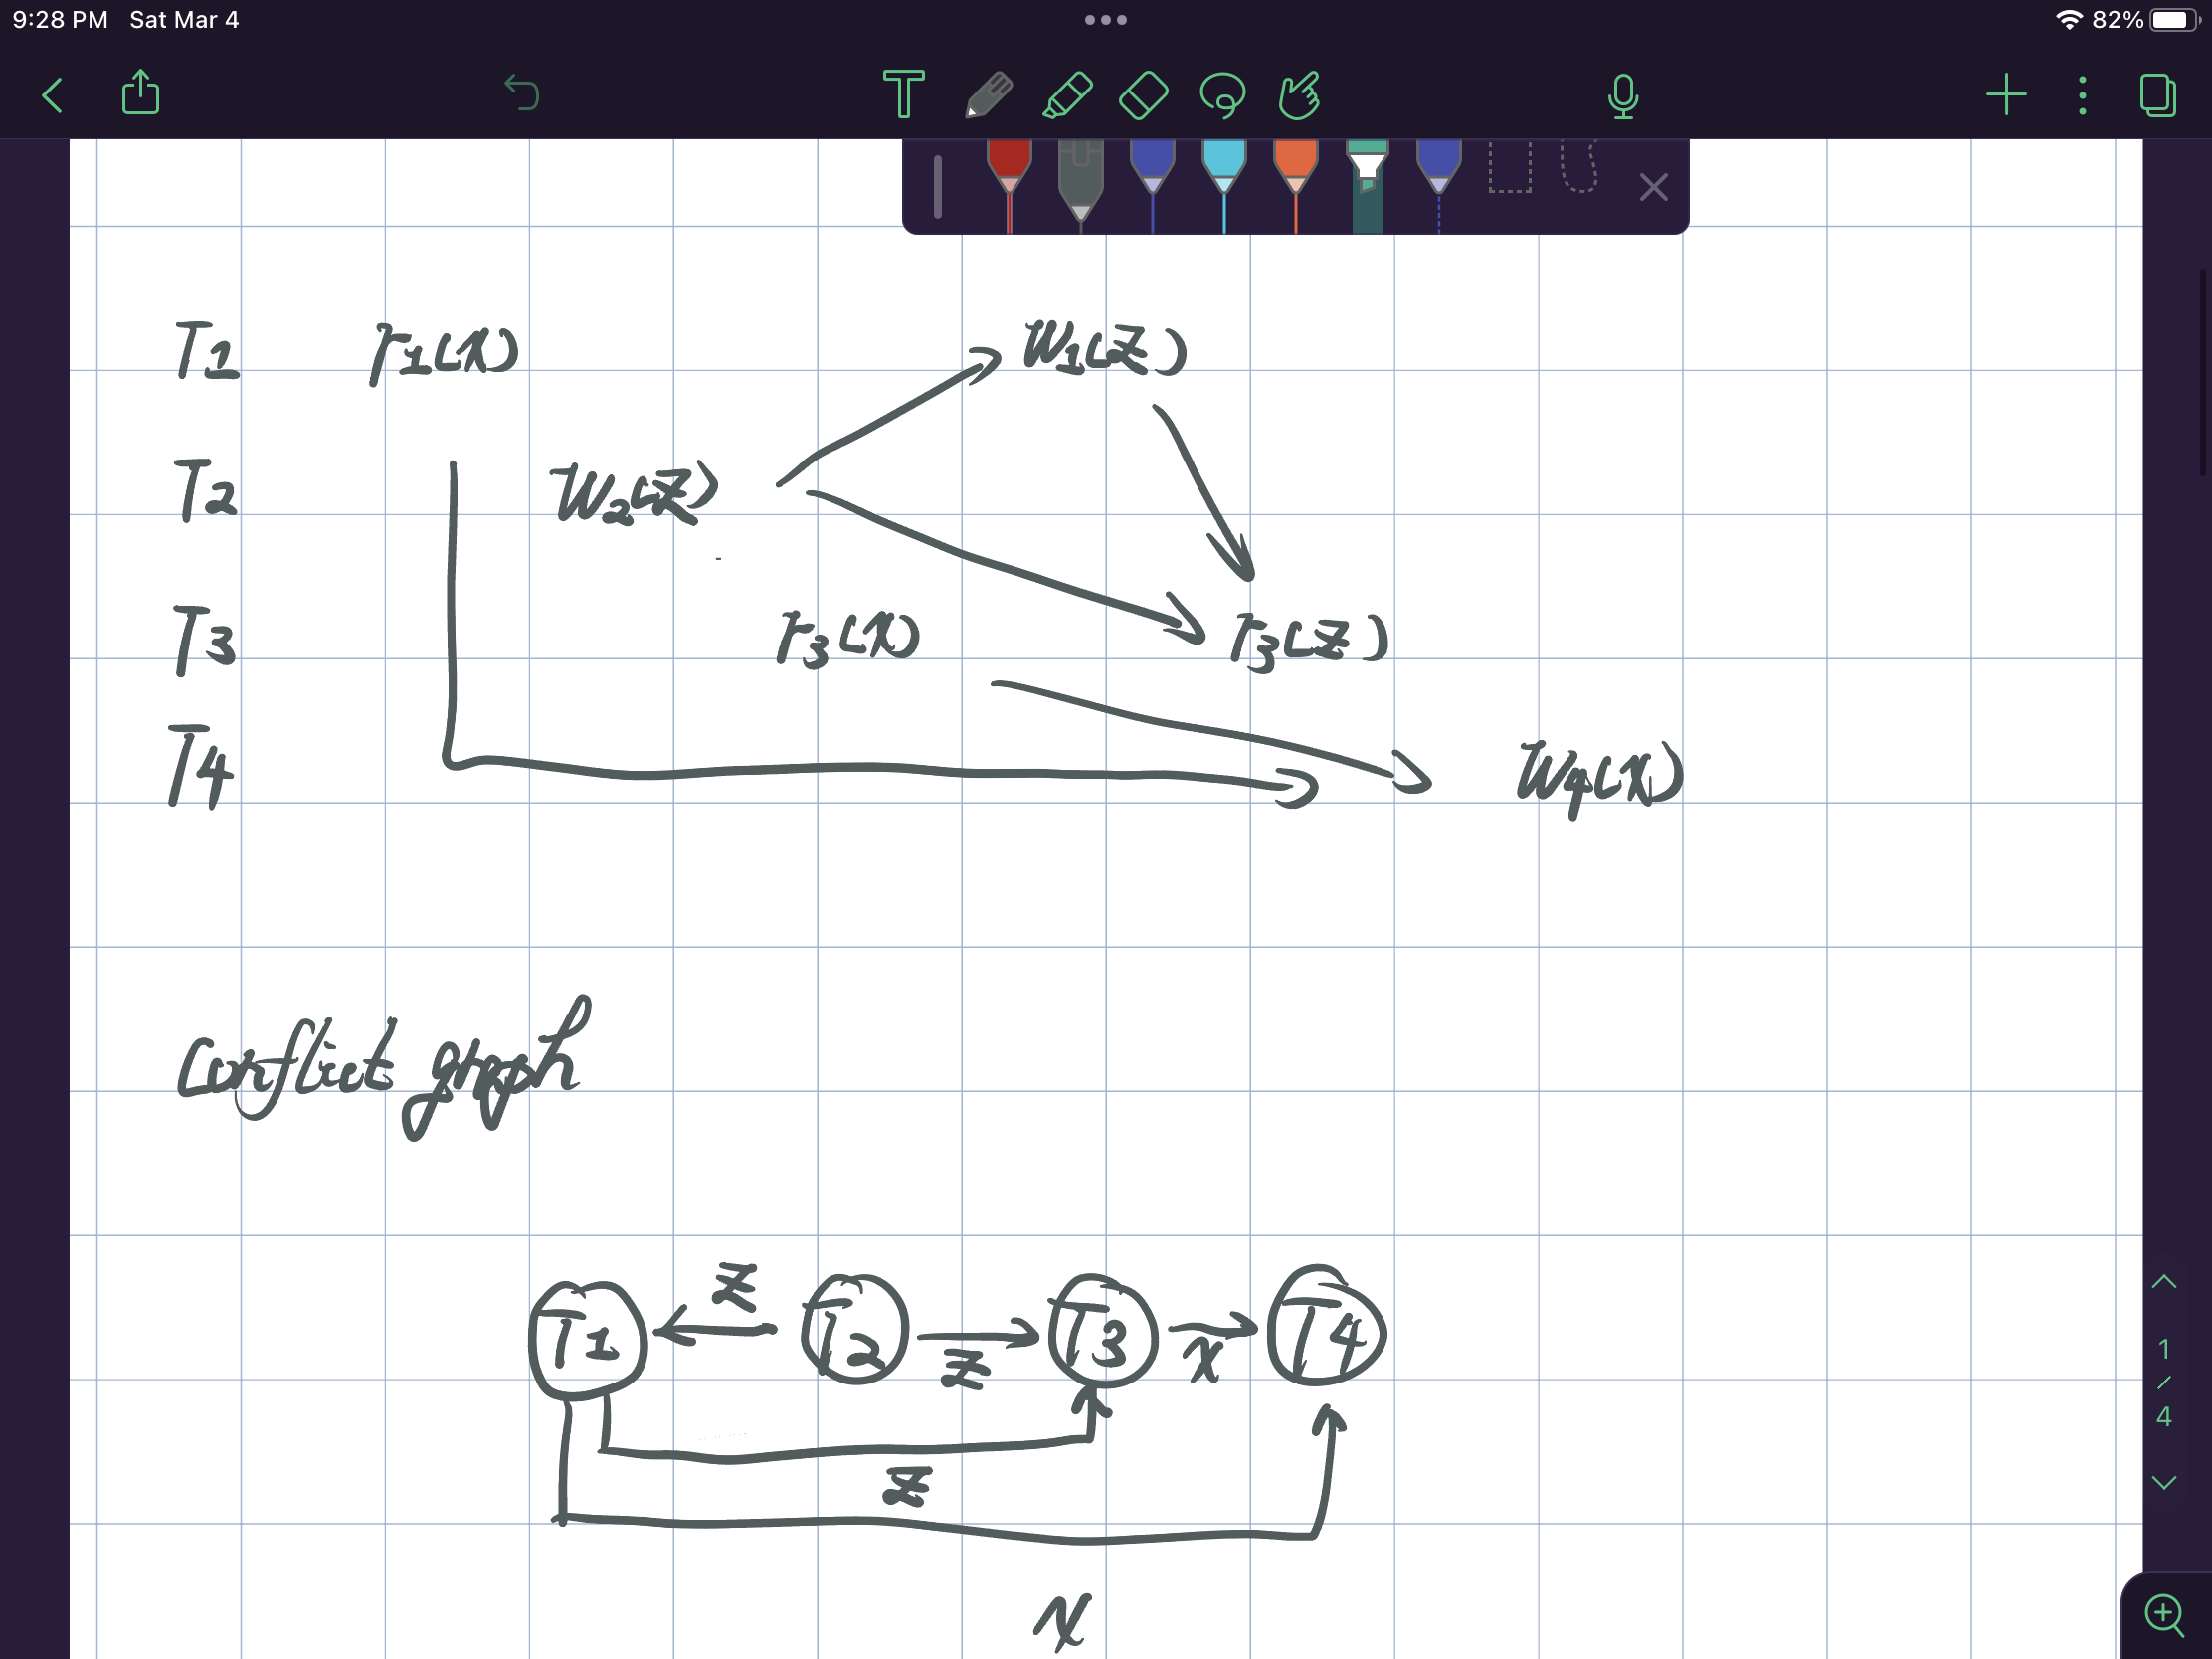 9:28 PM Sat Mar 4 82%
T
T1 r1(x) W1(z)
T2 W2(z)
T3 r3(x) r3(z)
T4 W4(x)
Conflict graph
z
T1 T2 T3 T4
z x
z
x
1
/
4